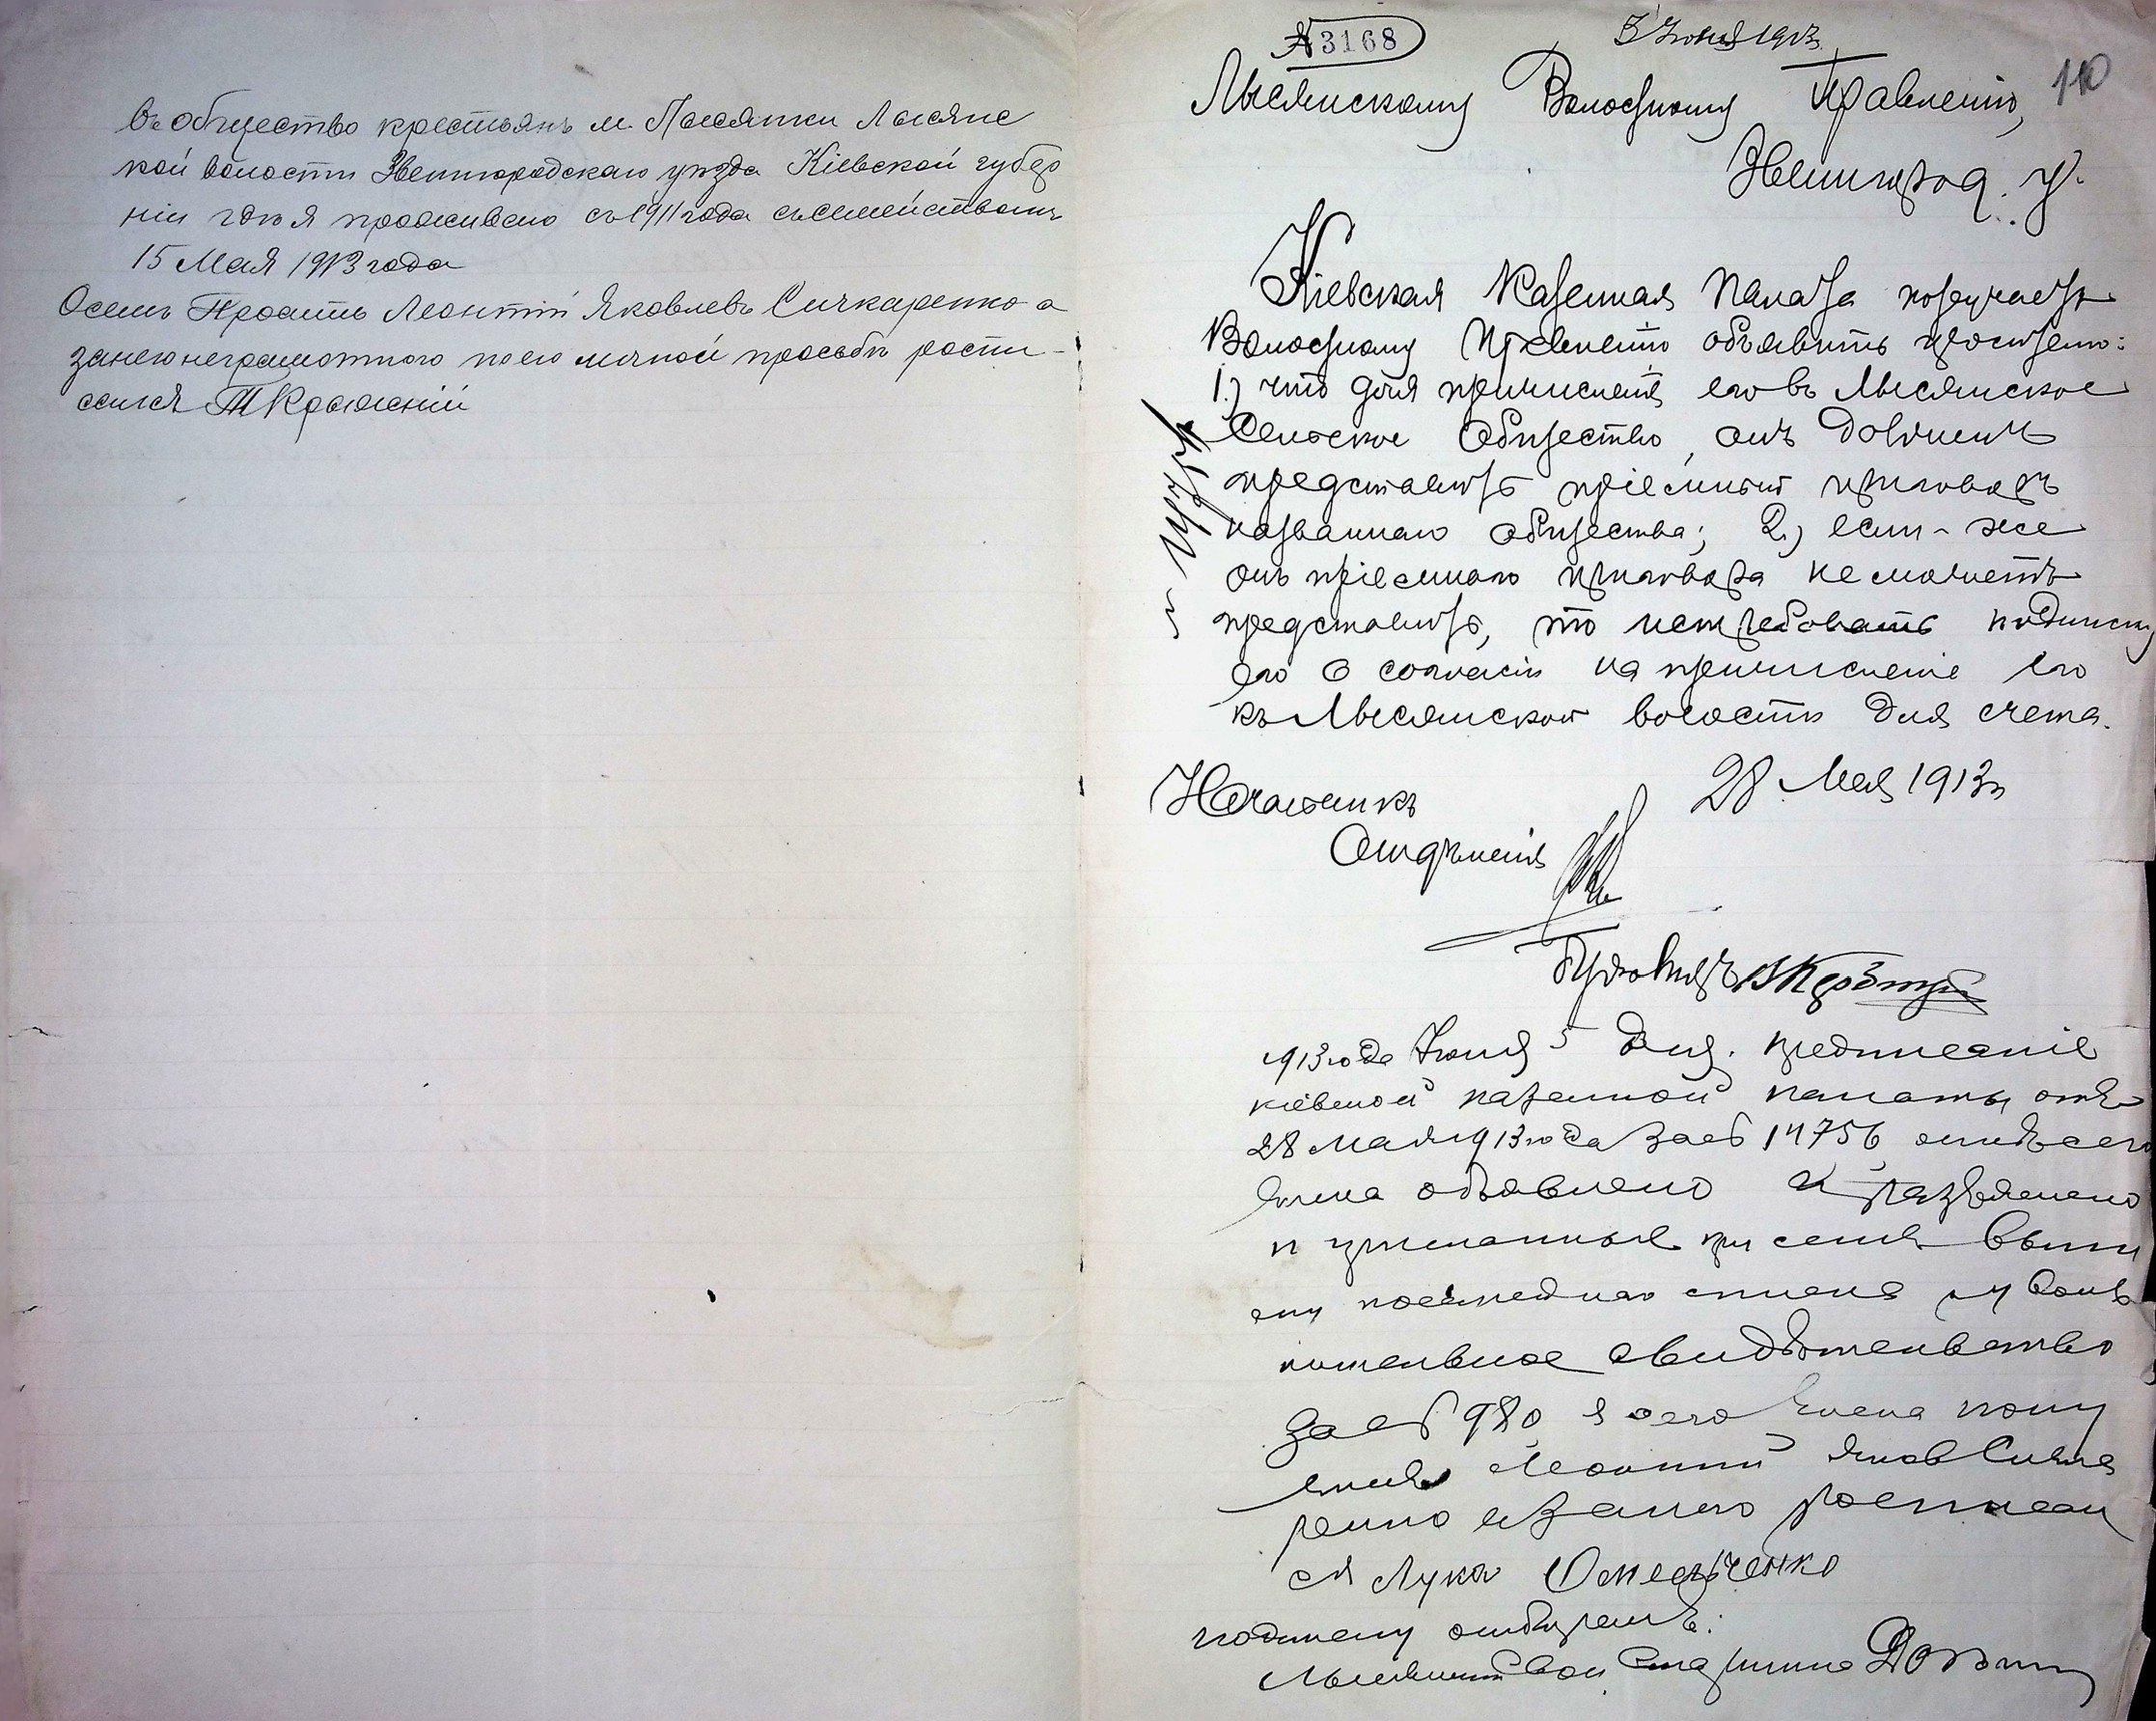 въ общество крестьянъ м. Лысянки Лысянс
кой волости Звенигородскаго уѣзда Кіевской губер
ніи гдѣ я проживаю съ 1911 года съ семействомъ
15 Мая 1913 года
Осемъ Проситъ Леонтій Яковлевъ Сичкаренко а
за него неграмотного по его личной просьбѣ роспи-
сался
№ 3168
3 Іюня 1913
110
Лысянскому Волостному Правленію,
Звенигород. у.
Кіевская Казенная Палата поручаетъ
Волостному Правленію объявить просителю:
1) что для причисленія его въ Лысянское
Сельское Общество, онъ долженъ
представить пріемный приговоръ
названнаго общества; 2) если-же
онъ пріемнаго приговора не можетъ
представить, то истребовать подписку
его о согласіи на причисленіе его
къ Лысянской волости для счета.
28 Мая 1913 г.
Начальникъ
Отдѣленія
1913 года Іюня 5 дня. предписаніе
кіевской казенной палаты отъ
28 мая 1913 года за № 14756 сего
числа объявлено и разъяснено
и
ему
свидѣтельство
за № 980 сего числа полу
чилъ Леонтій Яков Сичка
ренко а за него росписал
ся Лука Омельченко
подписку отбиралъ:
Старшина